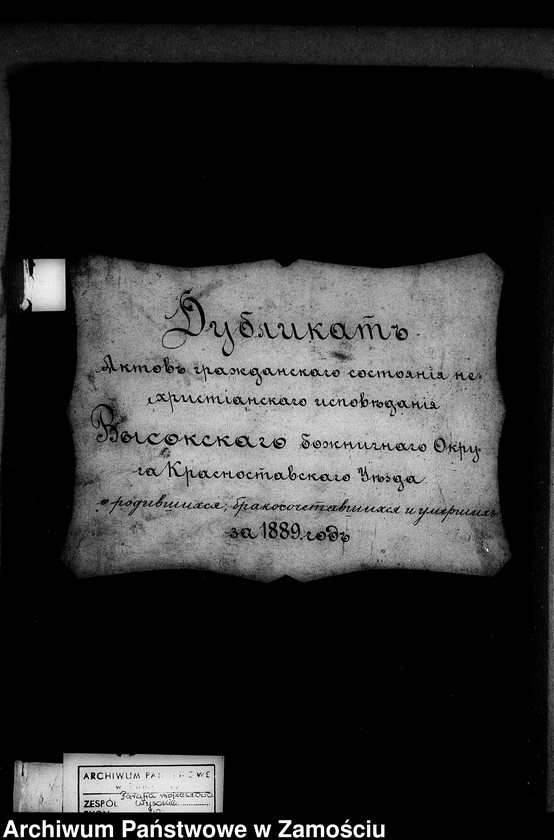 Дубликатъ
Актовъ гражданскаго состоянія не-
христіанскаго исповѣданія
Высокскаго божничнаго Окру-
га Красноставскаго Уѣзда
о родившихся, бракосочетавшихся и умершихъ
за 1889 годъ
ARCHIWUM PAŃSTWOWE
ZESPÓŁ Wysokie
Archiwum Państwowe w Zamościu